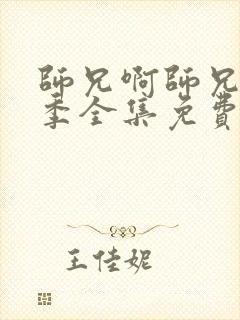 師兄啊師兄
季全集免費
王佳妮